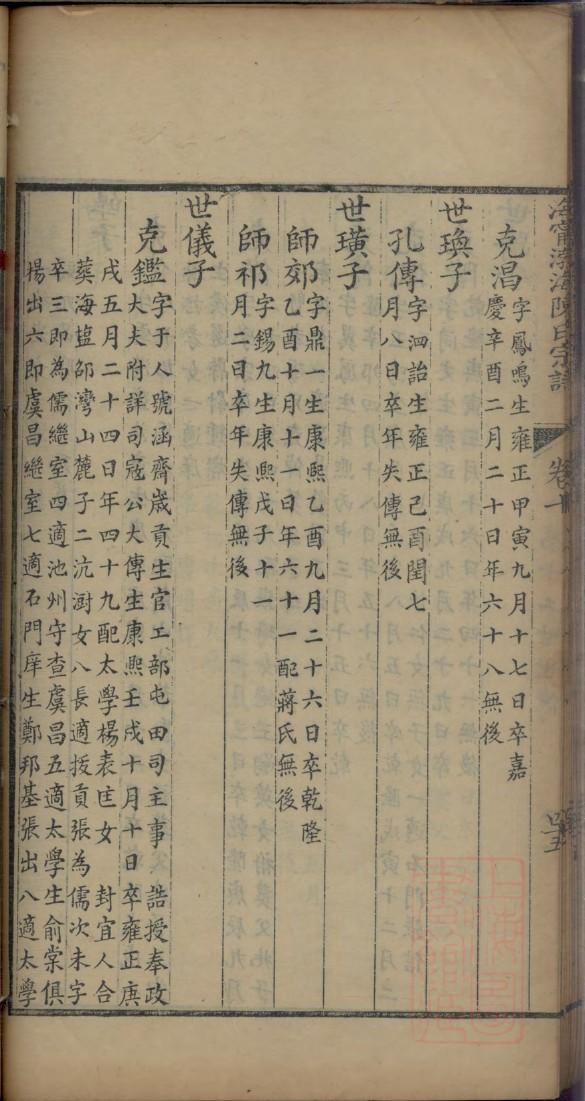 海寧渤海陳氏宗譜
卷十
四五
克淐字鳳鳴生雍正甲寅九月十七日卒嘉
慶辛酉二月二十日年六十八無後
世瑍子
孔傳字泗詒生雍正己酉閏七
月八日卒年失傳無後
世璜子
師郊字鼎一生康熙乙酉九月二十六日卒乾隆
乙酉十月十一日年六十一配蔣氏無後
師祁字錫九生康熙戊子十一
月二日卒年失傳無後
世儀子
克鑑字于人號涵齋歲貢生官工部屯田司主事 誥授奉政
大夫附詳司寇公大傳生康熙壬戌十月十日卒雍正庚
戌五月二十四日年四十九配太學楊表匡女 封宜人合
葬海鹽邵灣山麓子二沆澍女八長適拔貢張為儒次未字
卒三即為儒繼室四適池州守查虞昌五適太學生俞棠俱
楊出六即虞昌繼室七適石門庠生鄭邦基張出八適太學